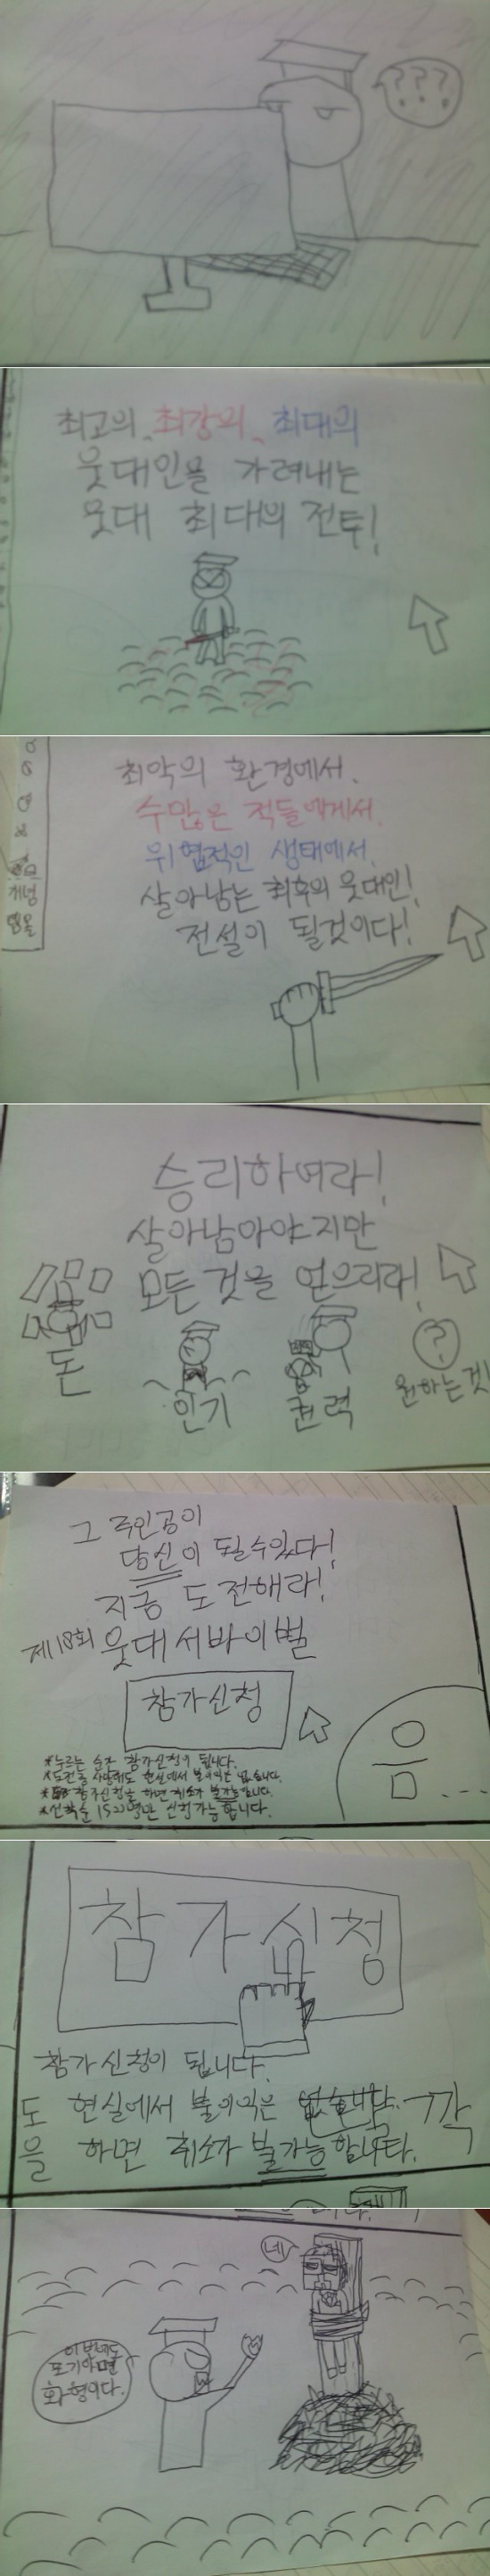 ???
최고의, 최강의, 최대의
웃대인을 가려내는
웃대 최대의 전투!
최악의 환경에서,
수많은 적들에게서,
위협적인 생태에서,
살아남는 최후의 웃대인!
전설이 될것이다!
개념
승리하여라!
살아남아야지만
모든 것을 얻으리라!
돈
인기
권력
?
원하는것
그 주인공이
당신이 될수있다!
지금 도전해라!
제18회 웃대 서바이벌
참가신청
*누르는 순간 참가신청이 됩니다.
현실에서 불이익은 없습니다.
참가신청을 하면 취소가 불가능합니다.
*선착순 신청가능합니다.
음...
참가신청
참가신청이 됩니다.
도 현실에서 불이익은 없습니다.
을 하면 취소가 불가능합니다.
네
이번에도
포기하면
화형이다.